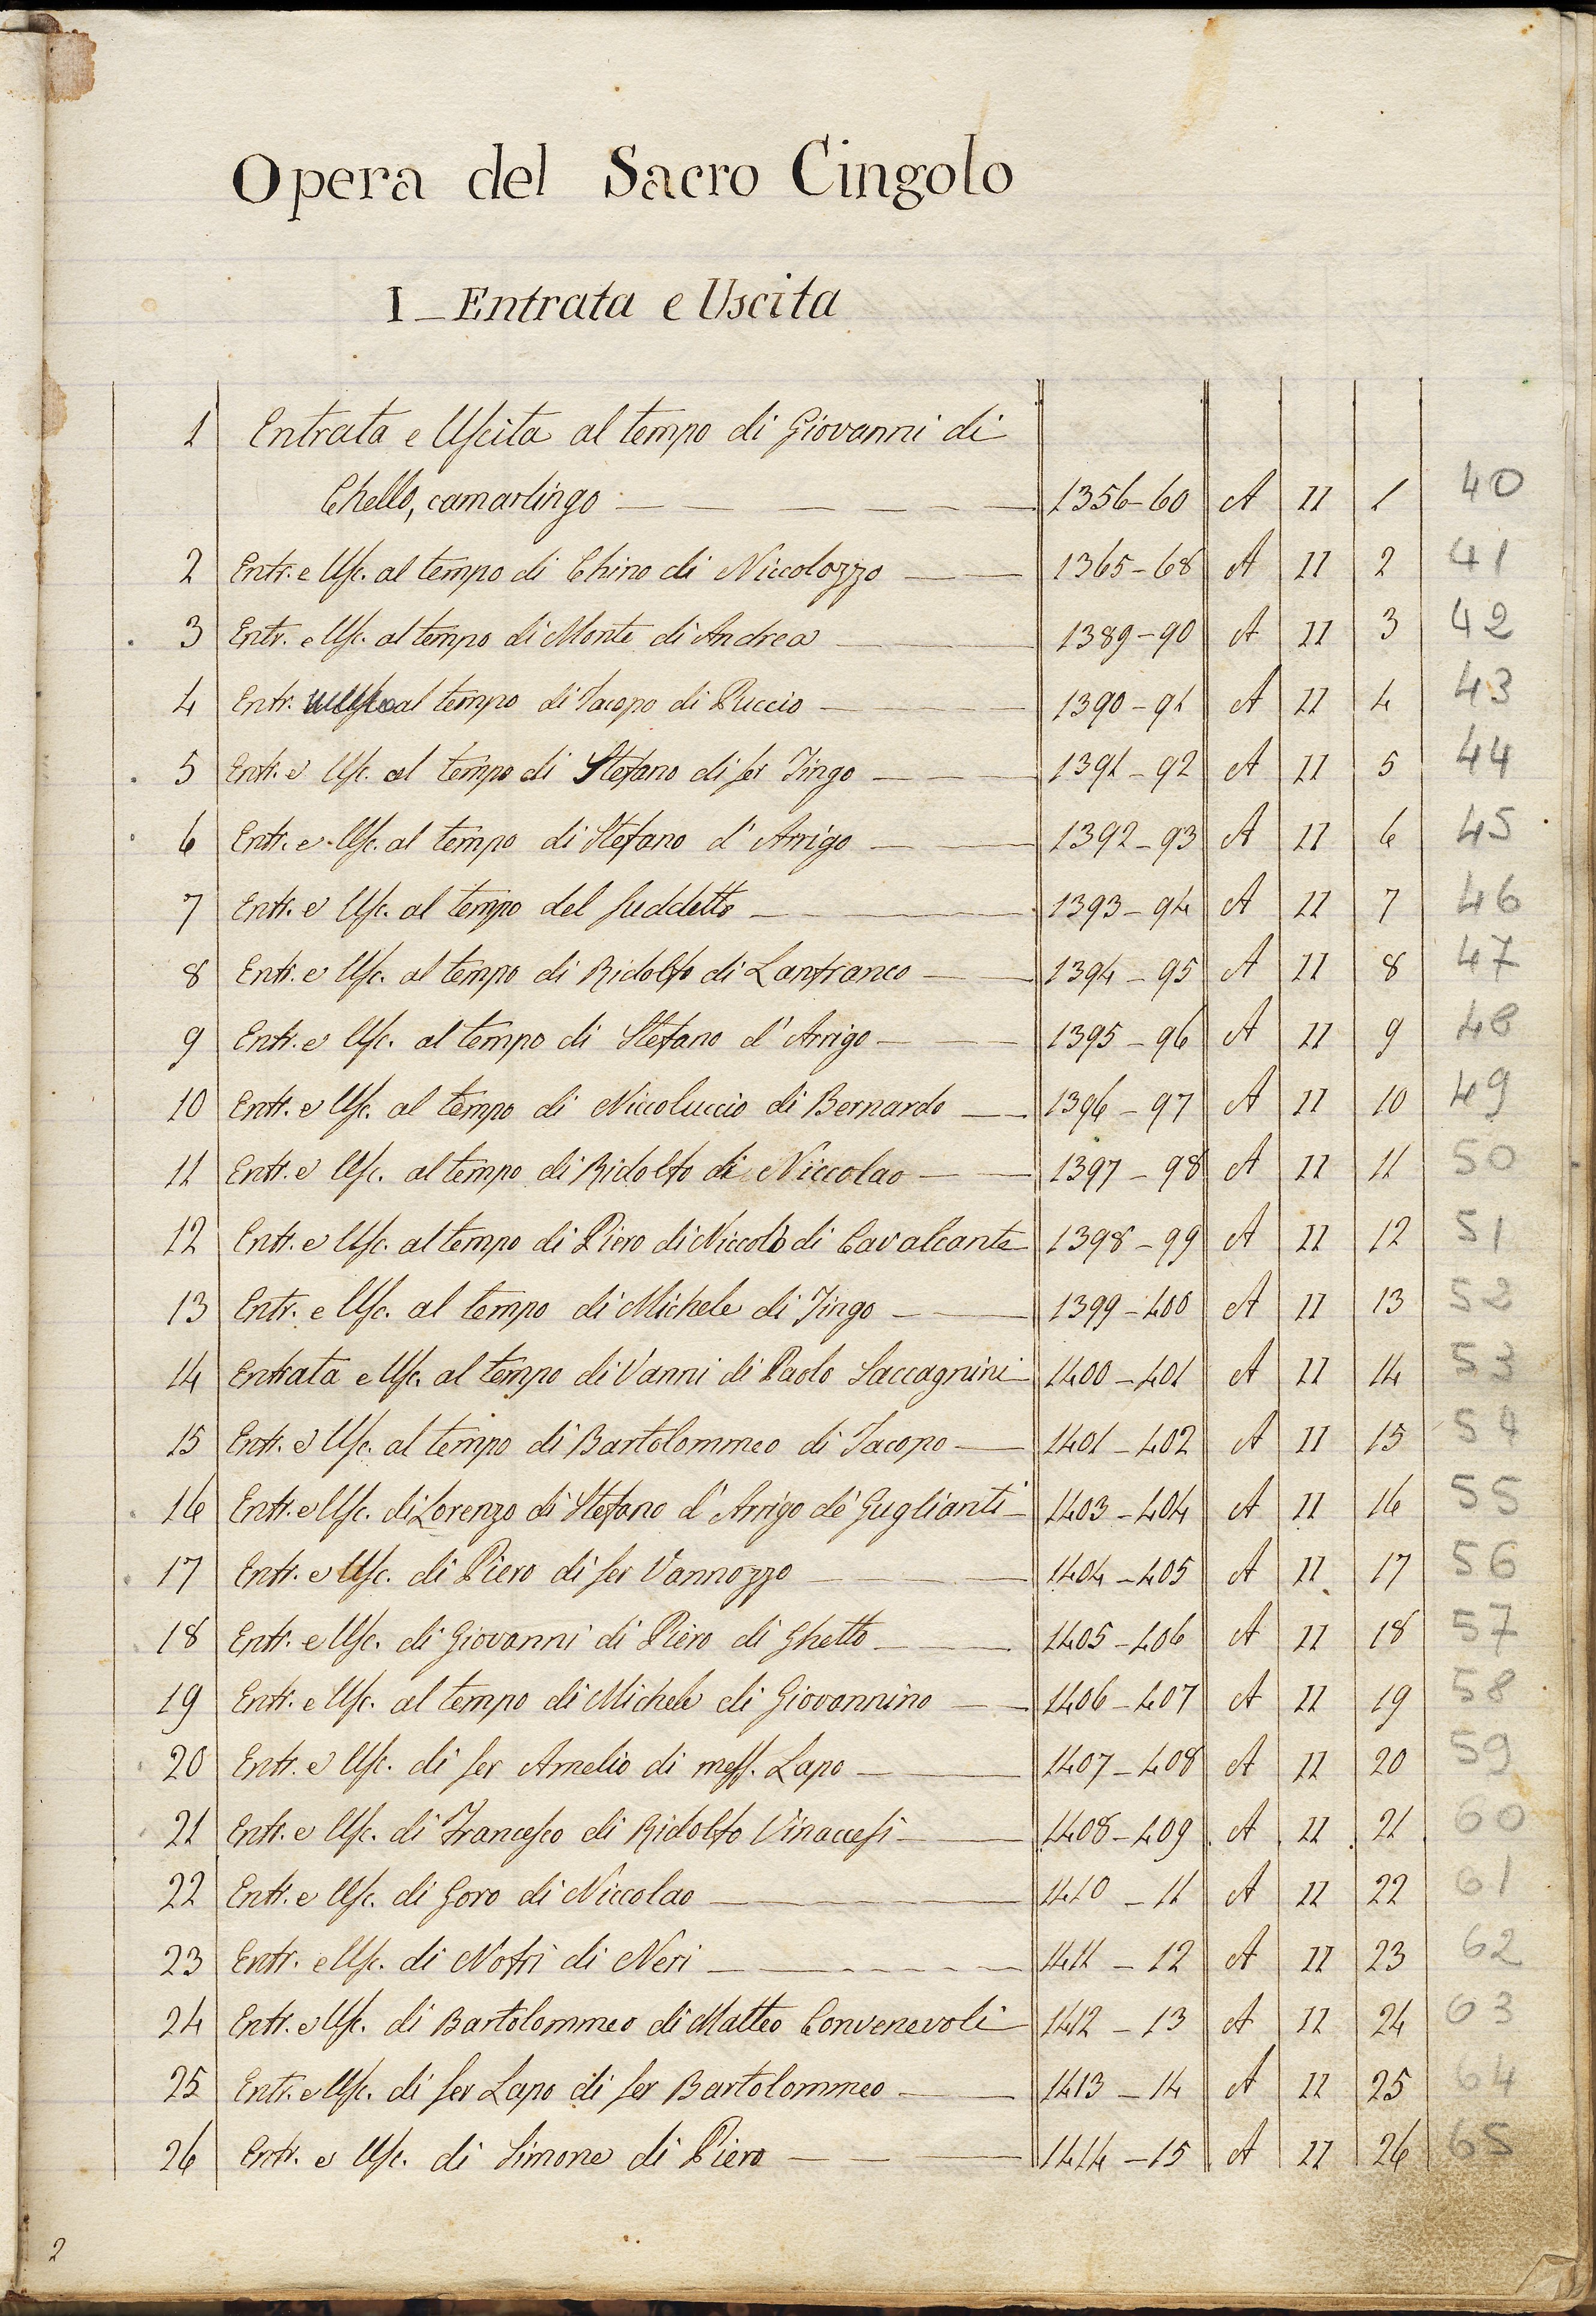 Opera del Sacro Cingolo
I _ Entrata e Uscita
1 Entrata e Uscita al tempo di Giovanni di
Chello, camarlingo 1356-60 A II 1 40
2 Entr. e Usc. al tempo di Chino di Niccolozzo 1365-68 A II 2 41
3 Entr. e Usc. al tempo di Monte di Andrea 1389-90 A II 3 42
4 Entr. al tempo di Jacopo di Puccio 1390-91 A II 4 43
5 Entr. e Usc. al tempo di Stefano di ser Tingo 1391-92 A II 5 44
6 Entr. e Usc. al tempo di Stefano d' Arrigo 1392-93 A II 6 45
7 Entr. e Usc. al tempo del suddetto 1393-94 A II 7 46
8 Entr. e Usc. al tempo di Ridolfo di Lanfranco 1394-95 A II 8 47
9 Entr. e Usc. al tempo di Stefano d' Arrigo 1395-96 A II 9 48
10 Entr. e Usc. al tempo di Niccoluccio di Bernardo 1396-97 A II 10 49
11 Entr. e Usc. al tempo di Ridolfo di Niccolao 1397-98 A II 11 50
12 Entr. e Usc. al tempo di Piero di Niccolò di Cavalcante 1398-99 A II 12 51
13 Entr. e Usc. al tempo di Michele di Tingo 1399-400 A II 13 52
14 Entrata e Usc. al tempo di Vanni di Paolo Saccagnini 1400-401 A II 14 53
15 Entr. e Usc. al tempo di Bartolommeo di Jacopo 1401-402 A II 15 54
16 Entr. e Usc. di Lorenzo di Stefano d' Arrigo de' Guglianti 1403-404 A II 16 55
17 Entr. e Usc. di Piero di ser Vannozzo 1404-405 A II 17 56
18 Entr. e Usc. di Giovanni di Piero di Ghetto 1405-406 A II 18 57
19 Entr. e Usc. al tempo di Michele di Giovannino 1406-407 A II 19 58
20 Entr. e Usc. di ser Amelio di mess. Lapo 1407-408 A II 20 59
21 Entr. e Usc. di Francesco di Ridolfo Vinaccesi 1408-409 A II 21 60
22 Entr. e Usc. di Goro di Niccolao 1410-11 A II 22 61
23 Entr. e Usc. di Nofri di Neri 1411-12 A II 23 62
24 Entr. e Usc. di Bartolommeo di Matteo Convenevoli 1412-13 A II 24 63
25 Entr. e Usc. di ser Lapo di ser Bartolommeo 1413-14 A II 25 64
26 Entr. e Usc. di Simone di Piero 1414-15 A II 26 65
2